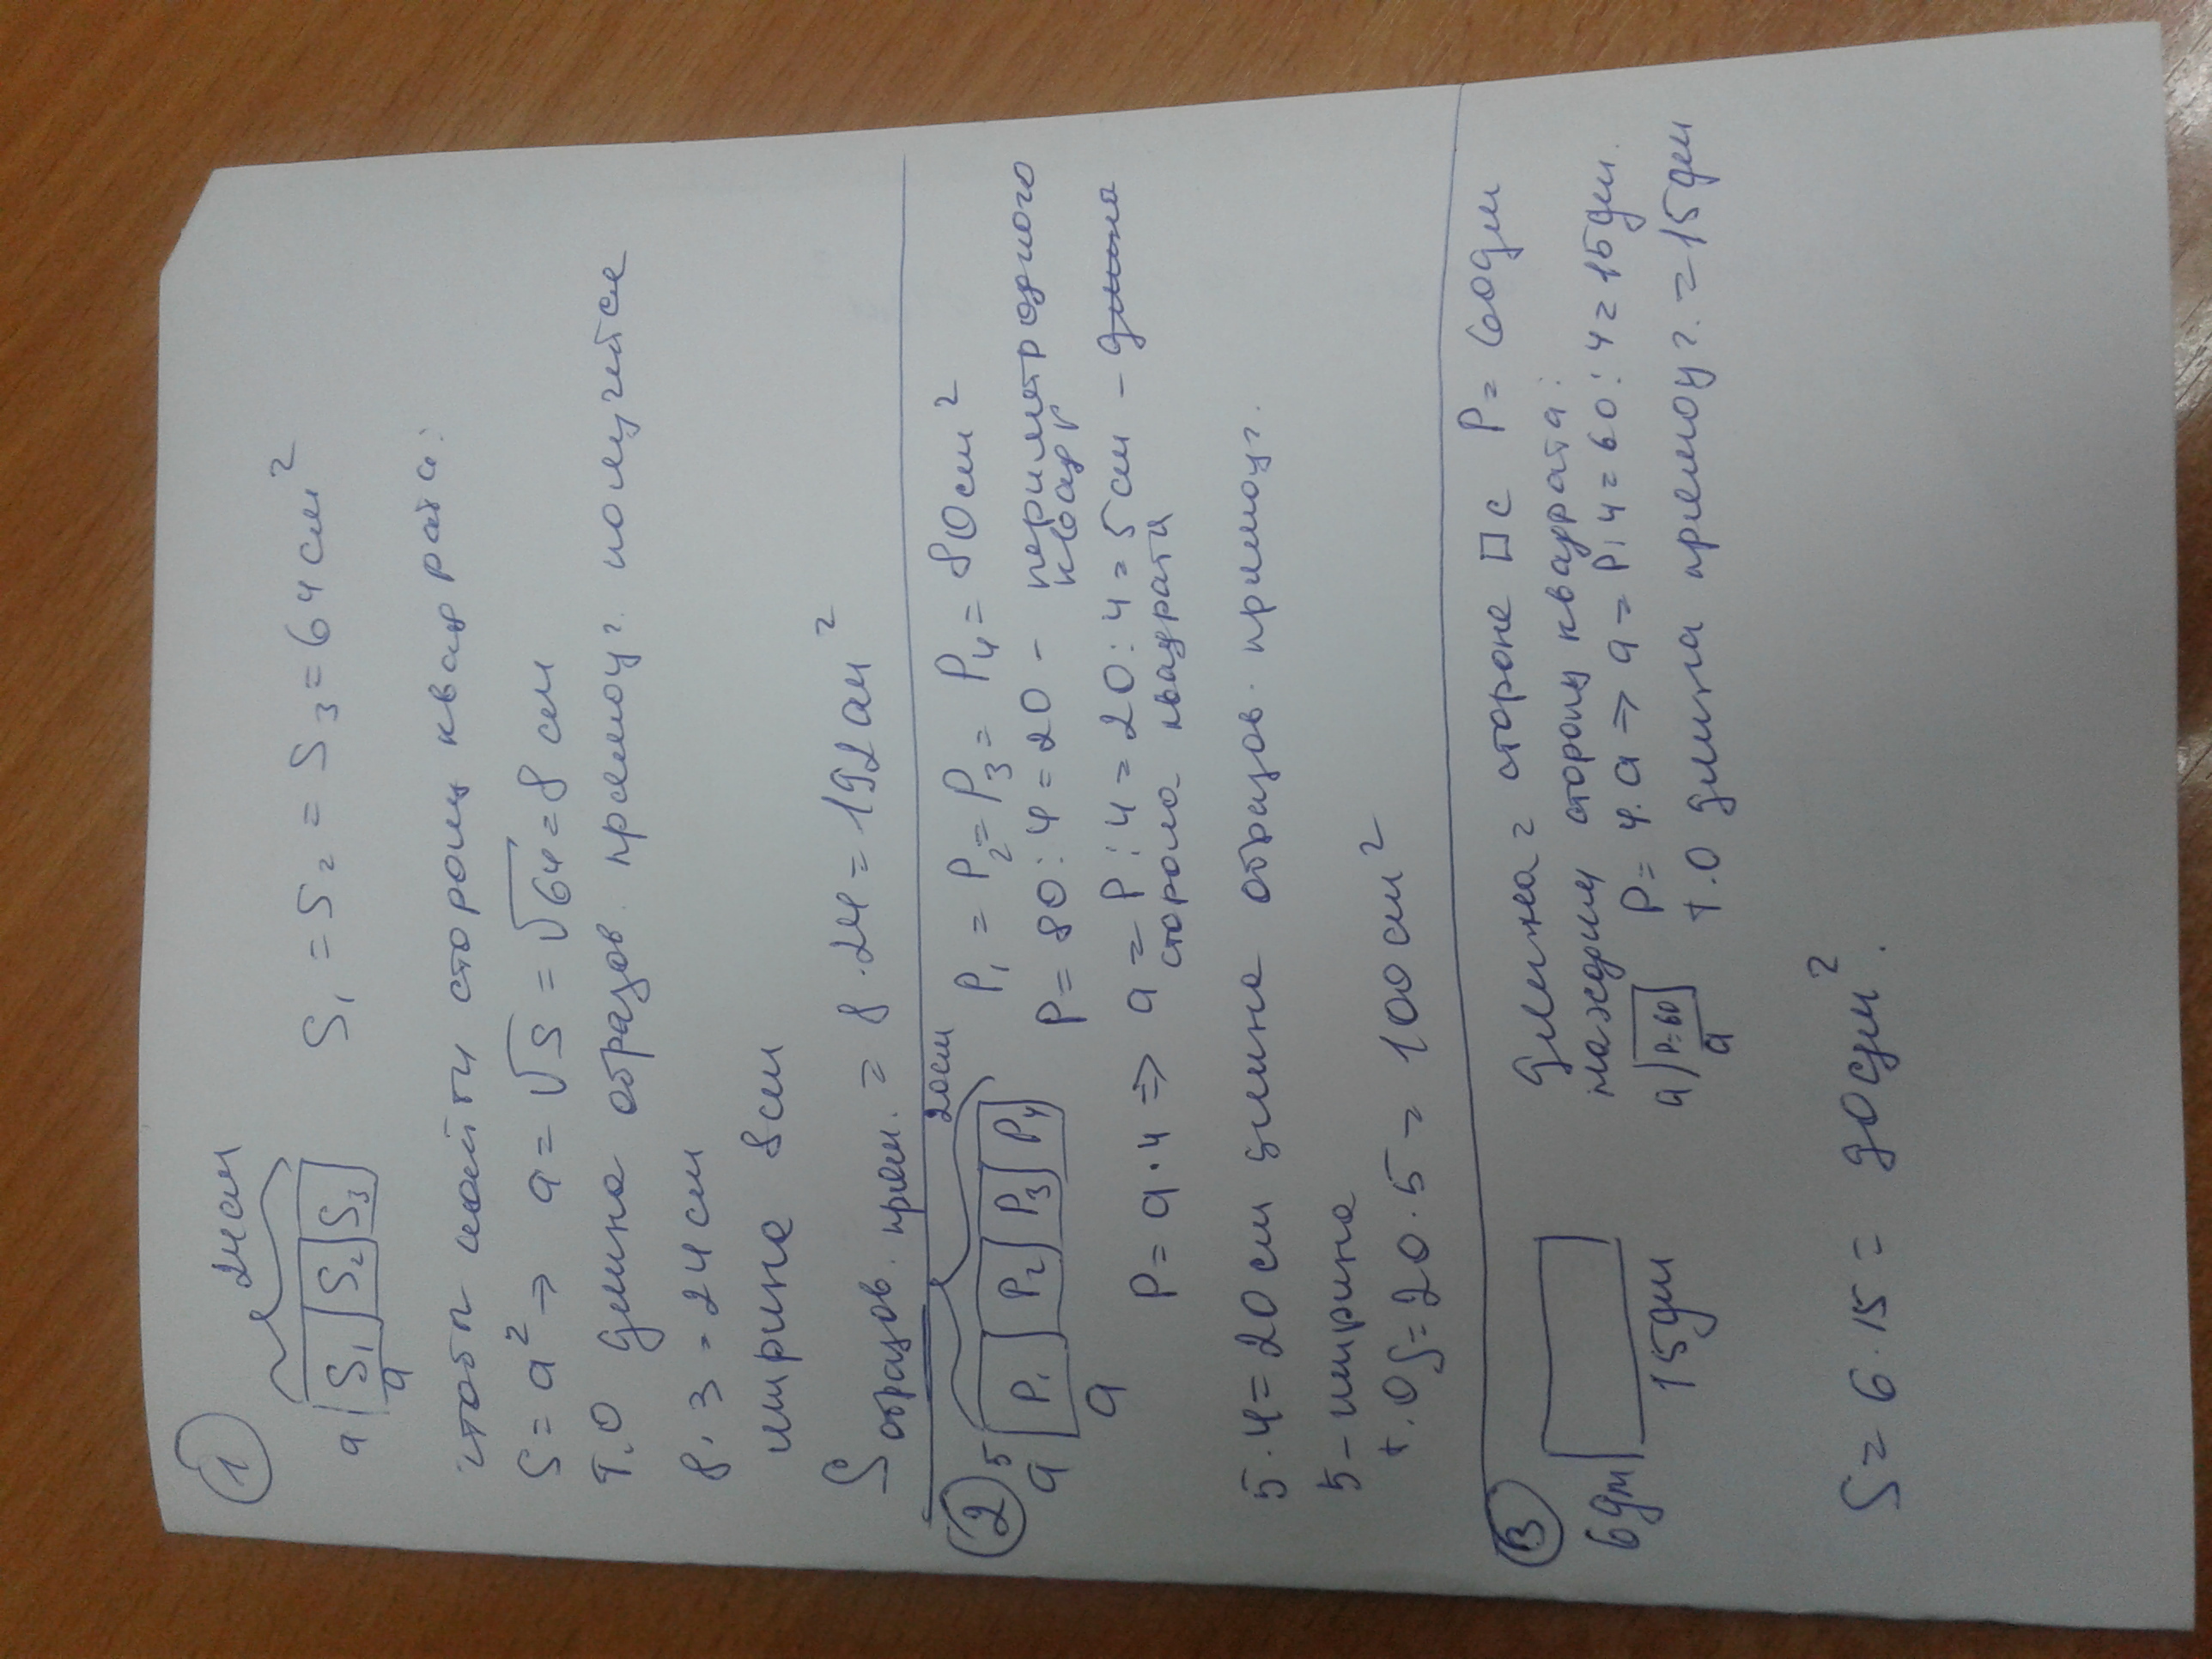 1
24 см
S₁ = S₂ = S₃ = 64 см²
a S₁ S₂ S₃
a
чтоб найти сторону квадрата:
S = a² ⇒ a = √S = √64 = 8 см
Т.О длина образов. прямоуг. получится
8 · 3 = 24 см
ширина 8 см
S образов. прям. = 8 · 24 = 192 см²
2
20 см
5
a P₁ P₂ P₃ P₄
a
P₁ = P₂ = P₃ = P₄ = 80 см²
P = 80 : 4 = 20 - периметр одного квадр
P = a · 4 ⇒ a = P : 4 = 20 : 4 = 5 см - длина
сторона квадрата
5 · 4 = 20 см длина образов. прямоуг.
5 - ширина
т.О S = 20 · 5 = 100 см²
3
6 дм
15 дм
длина = стороне □ с P = 60 дм
находим сторону квадрата:
a P=60
a
P = 4 · a ⇒ a = P : 4 = 60 : 4 = 15 дм.
т.О длина прямоуг. = 15 дм
S = 6 · 15 = 90 дм².